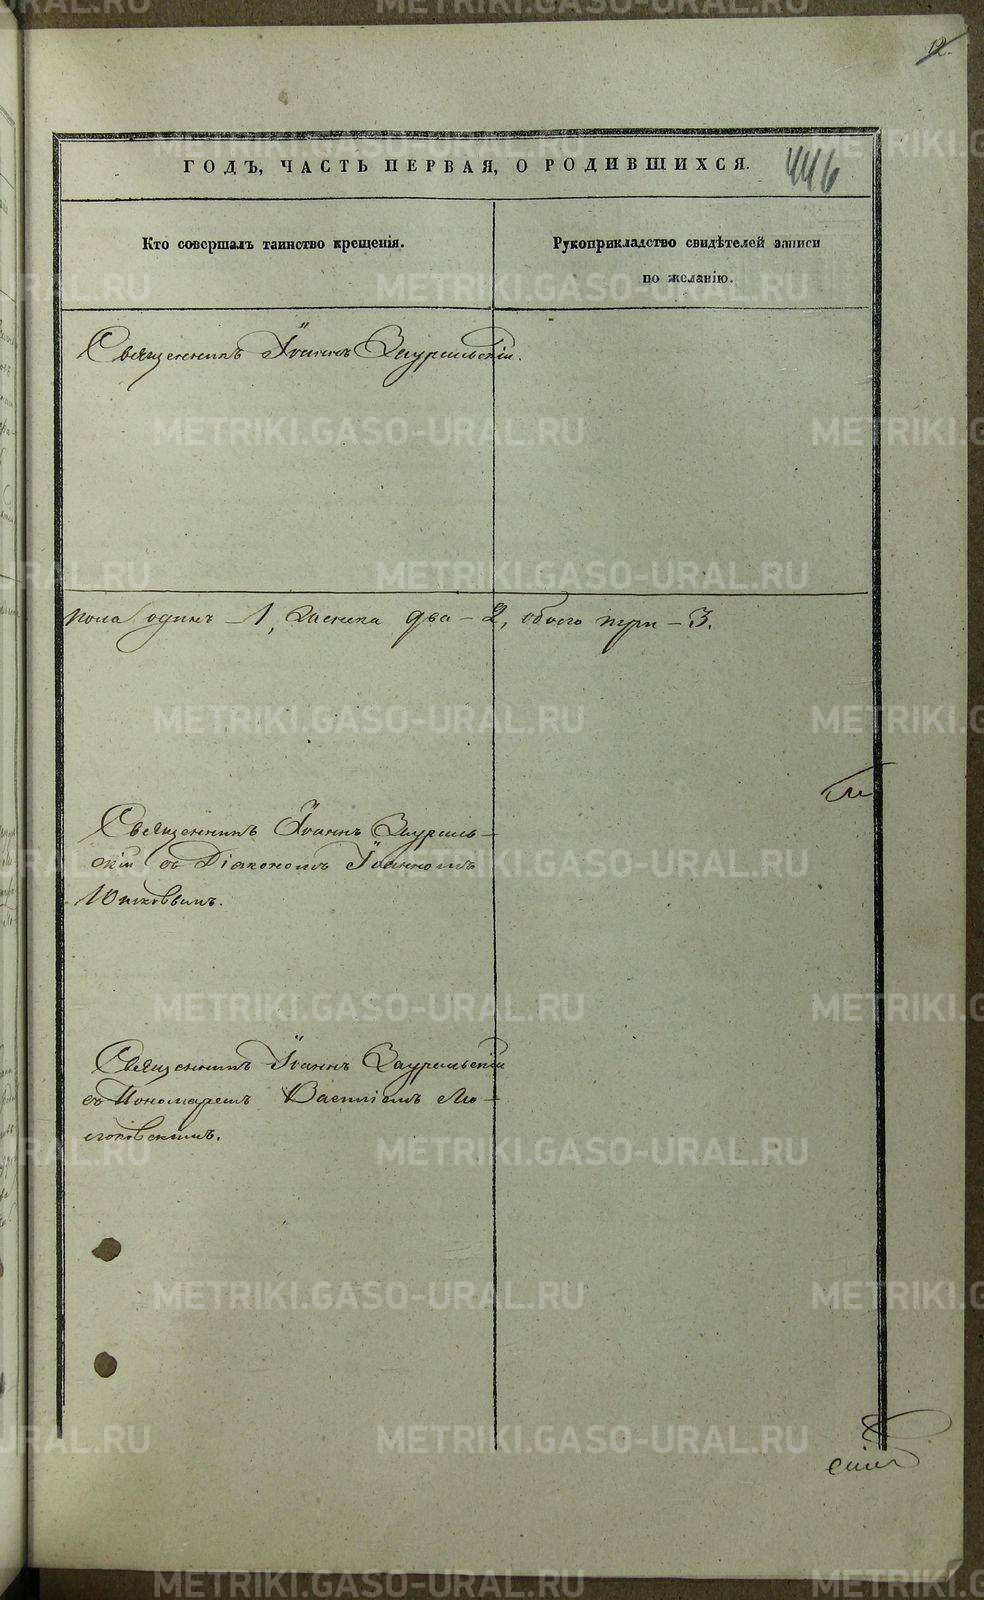 12.
ГОДЪ, ЧАСТЬ ПЕРВАЯ, О РОДИВШИХСЯ.
446
Кто совершалъ таинство крещенія.
Рукоприкладство свидѣтелей записи
по желанію.
Священникъ Іоаннъ Зауральскій.
пола одинъ – 1, женска два – 2, обоего три – 3.
Священникъ Іоаннъ Зураль-
скій съ Діакономъ Іоанномъ
Священникъ Іоаннъ Зауральскій
съ Пономаремъ Василіемъ
METRIKI.GASO-URAL.RU